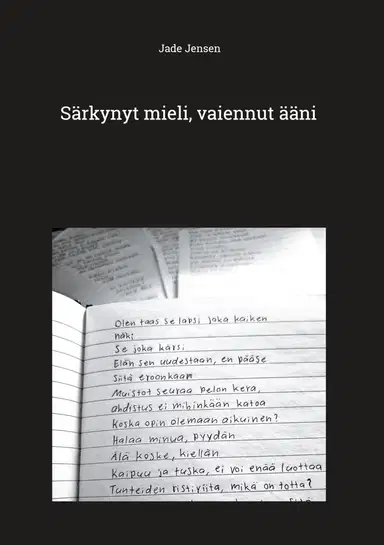 Jade Jensen
Särkynyt mieli, vaiennut ääni
Olen taas se lapsi joka kaiken
näki
Se joka kärsi
Elän sen uudestaan, en pääse
Siitä eroonkaan
Muistot seuraa pelon kera,
ahdistus ei mihinkään katoa
Koska opin olemaan aikuinen?
Halaa minua, pyydän
Älä koske, kiellän
Kaipuu ja tuska, ei voi enää luottaa
Tunteiden ristiriita, mikä on totta?